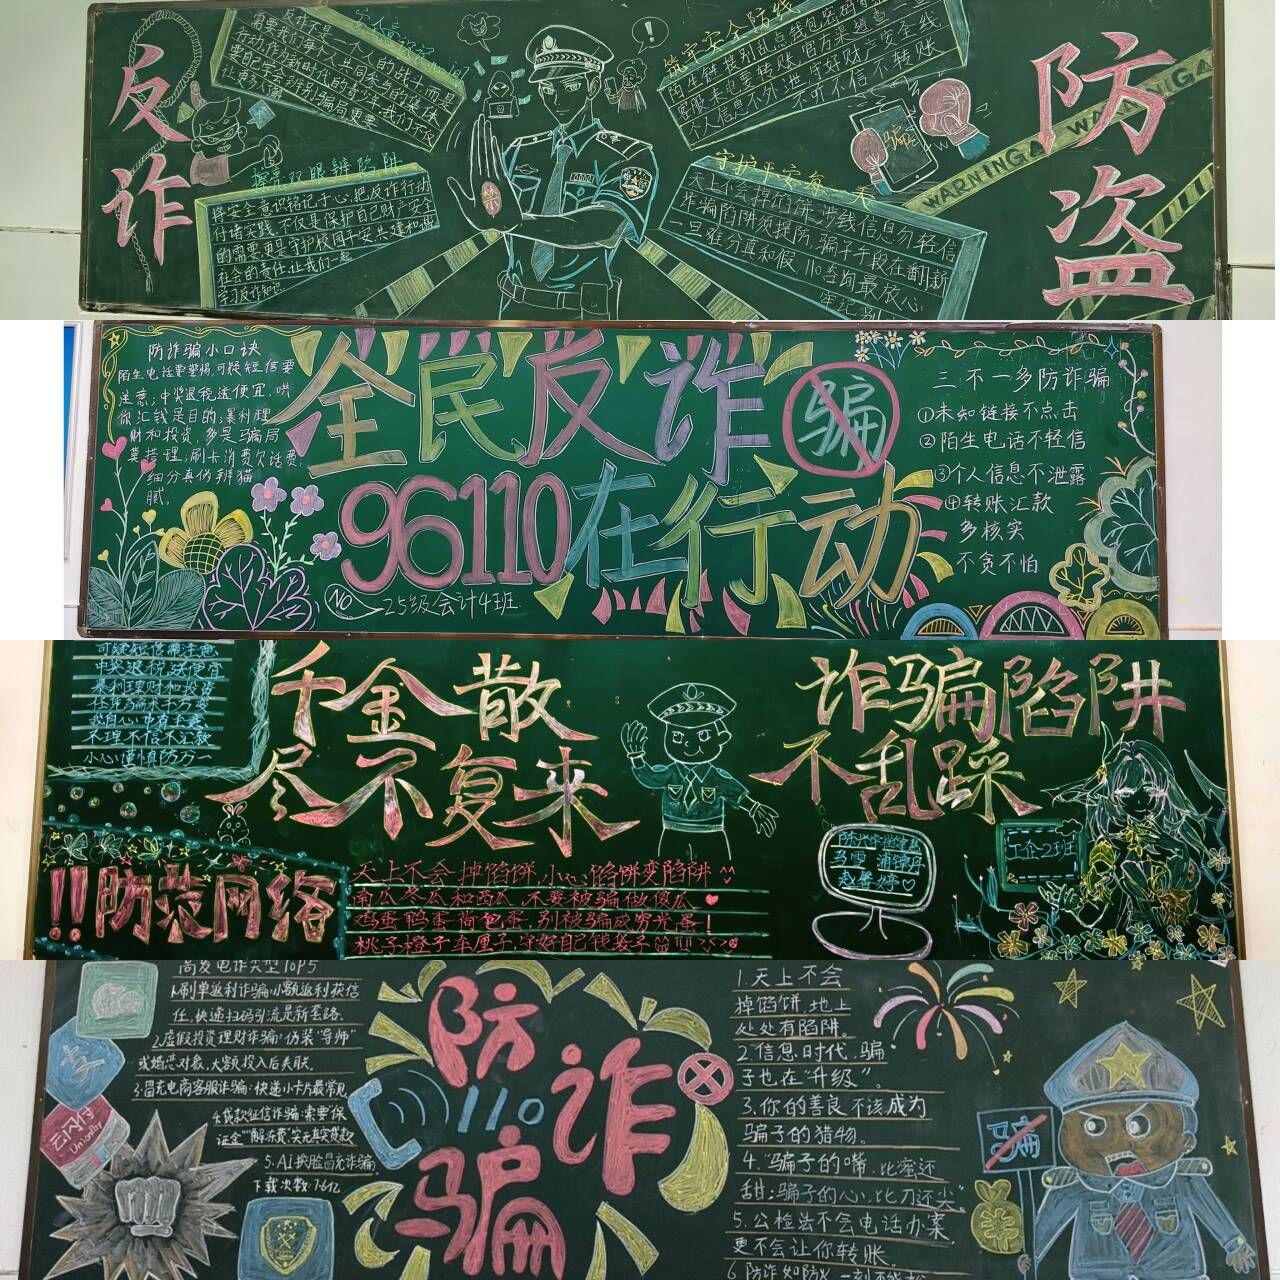 反诈
防盗
反诈不是一个人的战斗而是
需要我们每个人共同参与的集体
行动作为新时代的青年我们不仅
要自己学会识别骗局更要
筑牢安全防线
陌生链接别乱点钱包密码
客服来电要转账官方渠道查一查
个人信息不外泄守好财产安全线
不听不信不转账
擦亮双眼辨陷阱
将安全意识铭记于心,把反诈行动
付诸实践,不仅是保护自己财产安全
的需要更是守护校园平安共建和谐
社会的责任,让我们一起
学习反诈知识
守护平安每一天
天上不会掉馅饼,涉钱信息勿轻信
诈骗陷阱须提防,骗子手段在翻新
一旦难分真和假,110咨询最放心
骗
WARNING WARNING
防诈骗小口诀
陌生电话要警惕,可疑短信要
注意;中奖退税送便宜,哄
你汇钱是目的;暴利理
财和投资,多是骗局
莫搭理;刷卡消费欠话费,
细分真伪辨猫
腻。
全民反诈
骗
96110在行动
NO
25级会计4班
三不一多防诈骗
①未知链接不点击
②陌生电话不轻信
③个人信息不泄露
④转账汇款
多核实
不贪不怕
可疑短信需注意
中奖退税送便宜
暴利理财和投资
任凭骗术千万变
我自心中有主意
不理不信不汇款
小心谨慎防万一
千金散
尽不复来
诈骗陷阱
不乱踩
!!防范网络
天上不会掉馅饼,小心馅饼变陷阱
南瓜冬瓜和西瓜,不要被骗做傻瓜
鸡蛋鸭蛋荷包蛋,别被骗成穷光蛋!
桃子橙子车厘子,守好自己钱袋子
工企2班
高发电诈类型TOP5
1.刷单返利诈骗:小额返利获信
任,快递扫码引流是新套路.
2.虚假投资理财诈骗:伪装"导师"
或婚恋对象,大额投入后失联。
3.冒充电商客服诈骗:快递小卡片最常见
4.贷款征信诈骗:索要"保
证金""解冻费,实无真实贷款
5.AI换脸冒充诈骗.
下载次数:7.6亿
防诈
110
骗
1.天上不会
掉馅饼,地上
处处有陷阱。
2.信息时代,骗
子也在"升级"。
3.你的善良,不该成为
骗子的猎物。
4."骗子的嘴,比蜜还
甜;骗子的心,比刀还尖"。
5.公检法不会电话办案,
更不会让你转账。
6.防诈如防火,一刻不能松
骗